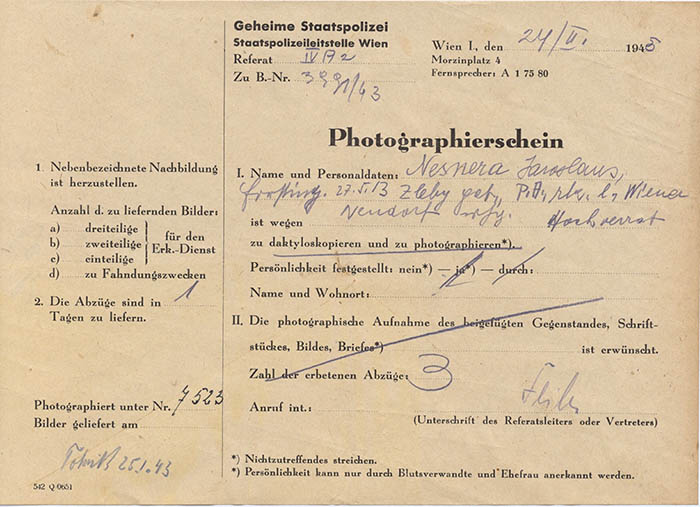 Geheime Staatspolizei
Staatspolizeileitstelle Wien
Referat IV A 2
Zu B.-Nr. 3991/43
Wien I., den 24/II. 1943
Morzinplatz 4
Fernsprecher: A 1 75 80
Photographierschein
1. Nebenbezeichnete Nachbildung
ist herzustellen.
Anzahl d. zu liefernden Bilder:
a) dreiteilige
b) zweiteilige
c) einteilige
für den
Erk.-Dienst
d) zu Fahndungszwecken
2. Die Abzüge sind in 1
Tagen zu liefern.
Photographiert unter Nr. 7523
Bilder geliefert am
25.1.43
542 Q 0651
I. Name und Personaldaten: Nesnera Jaroslaus,
Zleby geb, Wiener
ist wegen Neudorf Hochverrat
zu daktyloskopieren und zu photographieren*).
Persönlichkeit festgestellt: nein*) — ja*) — durch:
Name und Wohnort:
II. Die photographische Aufnahme des beigefügten Gegenstandes, Schrift-
stückes, Bildes, Briefes*) ist erwünscht.
Zahl der erbetenen Abzüge: 3
Anruf int.:
(Unterschrift des Referatsleiters oder Vertreters)
*) Nichtzutreffendes streichen.
*) Persönlichkeit kann nur durch Blutsverwandte und Ehefrau anerkannt werden.